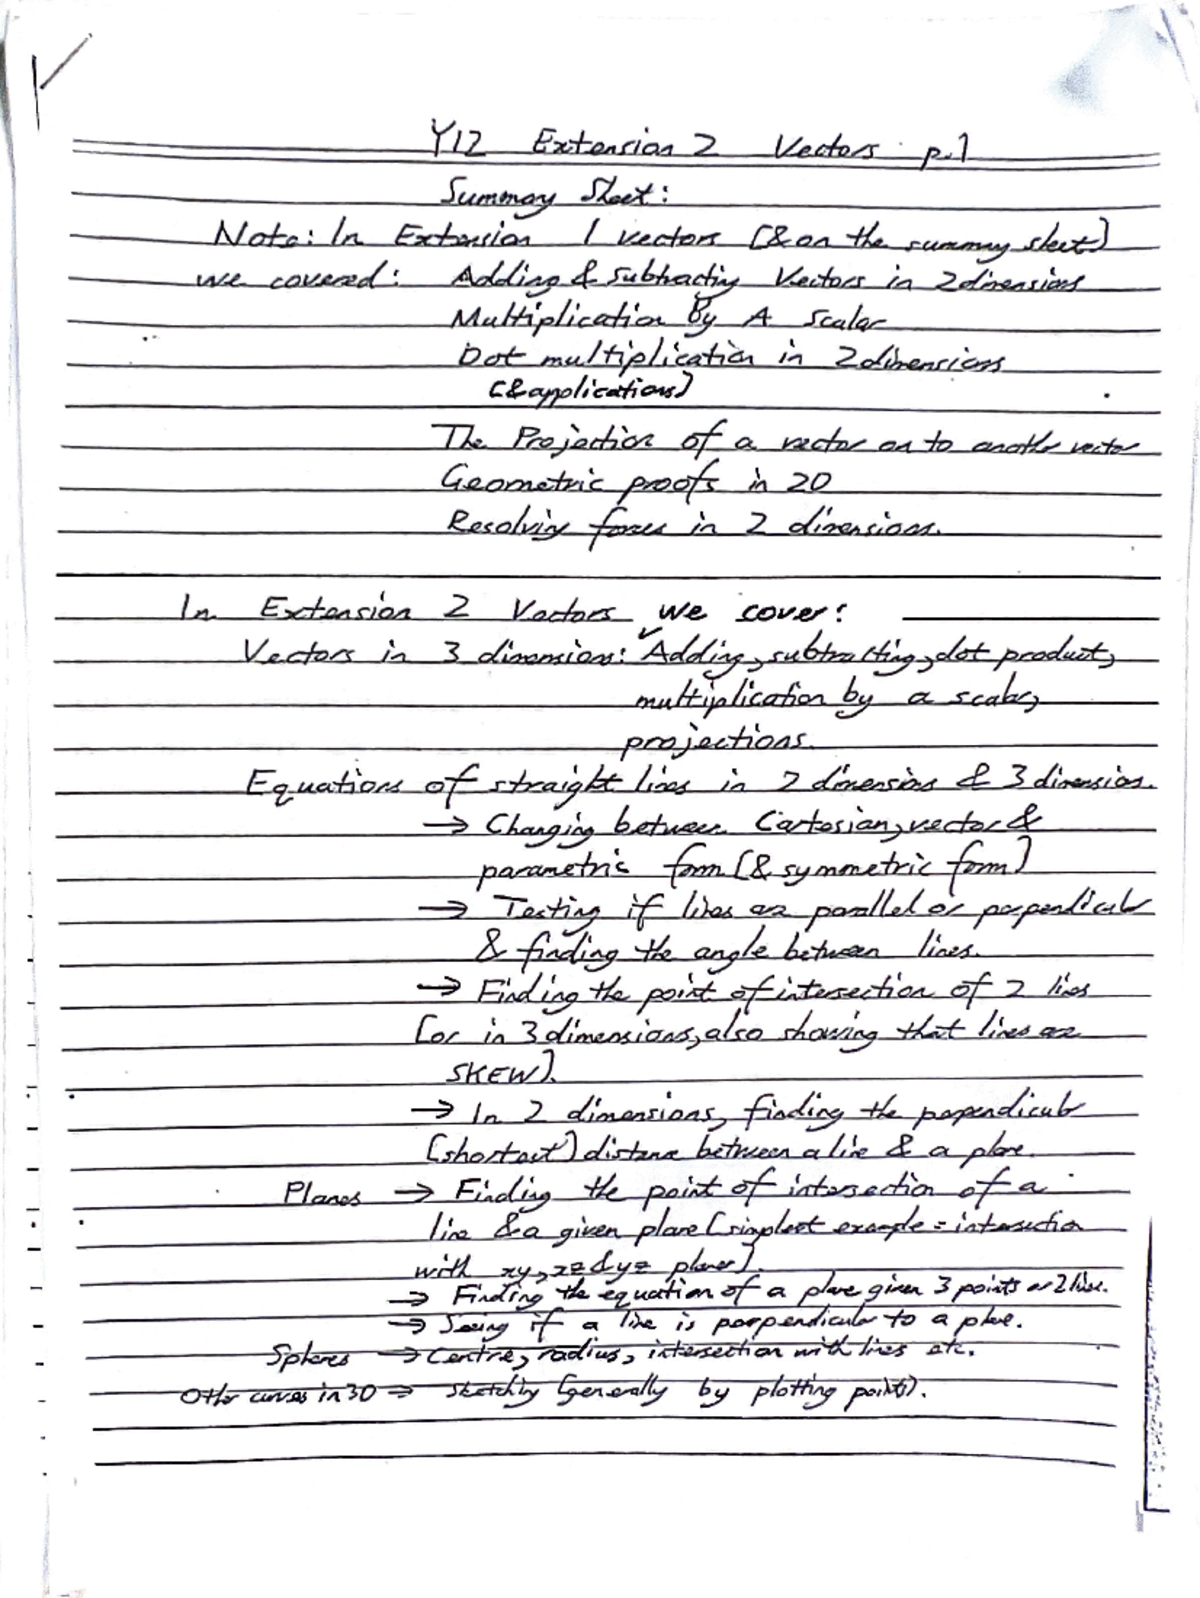 Y12 Extension 2 Vectors p.1
Summary Sheet:
Note: In Extension 1 vectors (& on the summary sheet)
we covered: Adding & subtracting Vectors in 2 dimensions
Multiplication By A Scalar
Dot multiplication in 2 dimensions
(& applications)
The Projection of a vector on to another vector
Geometric proofs in 2D
Resolving forces in 2 dimensions.
In Extension 2 Vectors we cover:
Vectors in 3 dimensions: Adding, subtracting, dot product,
multiplication by a scalar,
projections.
Equations of straight lines in 2 dimensions & 3 dimensions.
→ Changing between Cartesian, vector &
parametric form (& symmetric form)
→ Testing if lines are parallel or perpendicular
& finding the angle between lines.
→ Finding the point of intersection of 2 lines
(or in 3 dimensions, also showing that lines are
SKEW).
→ In 2 dimensions, finding the perpendicular
(shortest) distance between a line & a plane.
Planes → Finding the point of intersection of a
line & a given plane (simplest example = intersection
with xy, xz & yz planes).
→ Finding the equation of a plane given 3 points or 2 lines.
→ Seeing if a line is perpendicular to a plane.
Spheres → Centre, radius, intersection with lines etc.
Other curves in 3D → sketching (generally by plotting points).